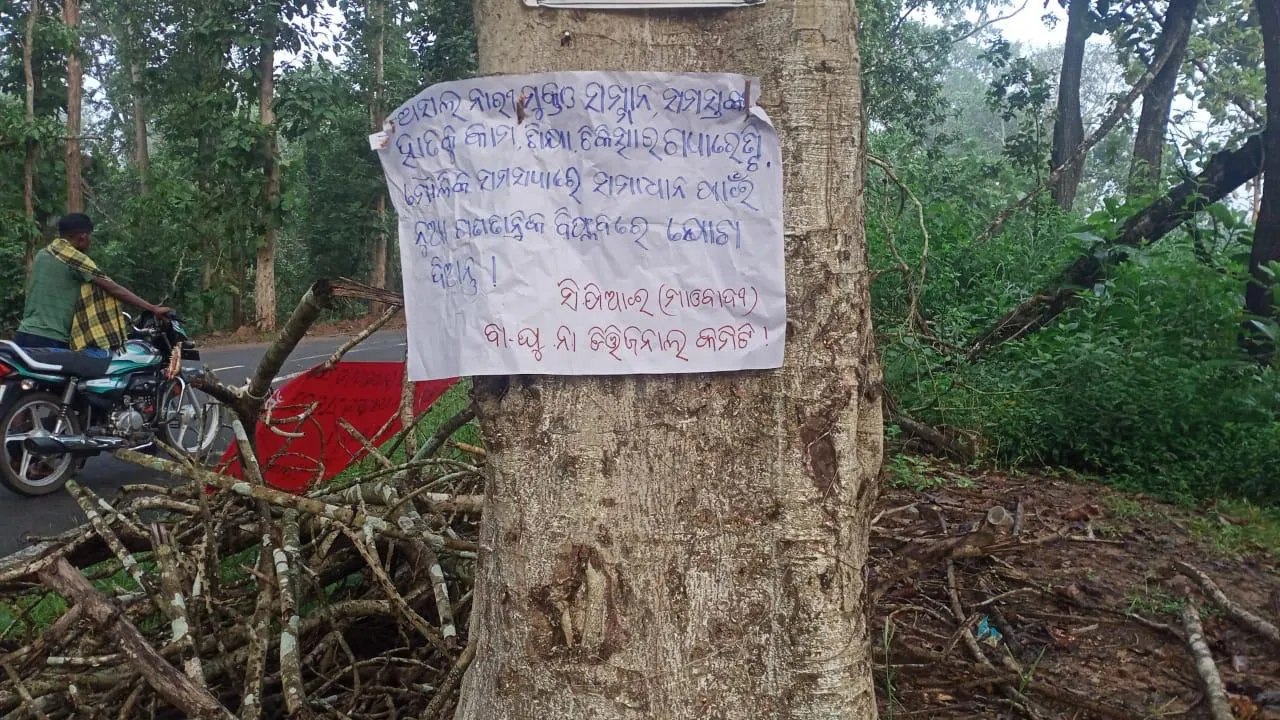 ଆସଲ ନାରୀ ମୁକ୍ତି ଓ ସମ୍ମାନ, ସମସ୍ତଙ୍କ
ହାତକୁ କାମ, ଶିକ୍ଷା, ଚିକିତ୍ସା
ମୌଳିକ ସମସ୍ୟାରେ ସମାଧାନ ପାଇଁ
ନୂଆ ଗଣତାନ୍ତ୍ରିକ ବିପ୍ଳବରେ ଯୋଗ
ଦିଅନ୍ତୁ !
ସିପିଆଇ (ମାଓବାଦୀ)
ବା.ଘୁ.ନା ଡିଭିଜନାଲ କମିଟି !